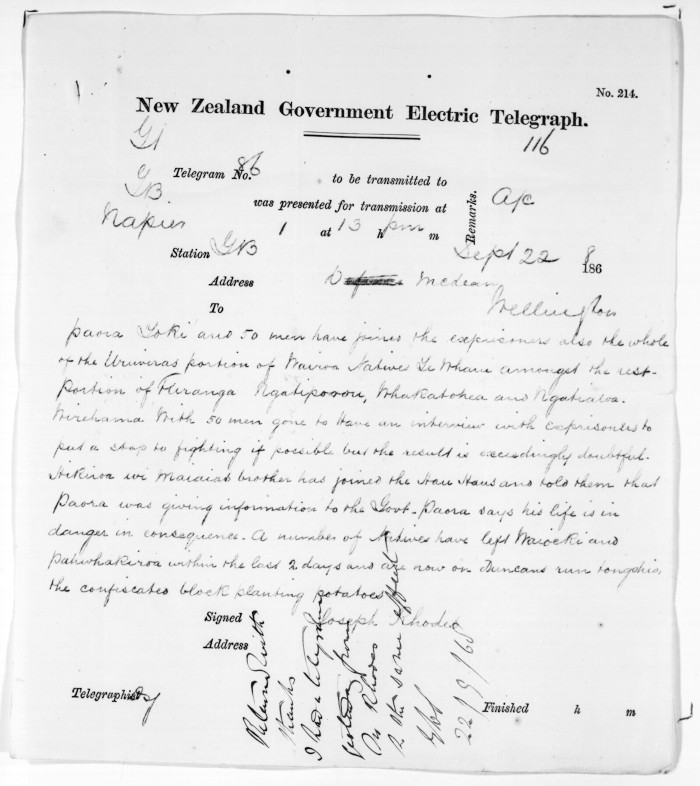 No. 214.
New Zealand Government Electric Telegraph.
116
Telegram No. 86 to be transmitted to
GB
Napier
was presented for transmission at
Remarks.
1 at 13 h pm m
Station GB
Sept 22 1868
Address D McLean
Wellington
To
paora Toki and 50 men have joined the exprisoners also the whole
of the Uriweras portion of Wairoa Natives Te Whare amongst the rest-
portion of Ngatiporou, Whakatohea and
Wirehama with 50 men gone to have an interview with exprisoners to
put a stop to fighting if possible but the result is exceedingly doubtful.
Hikiroa wi Maiaias brother has joined the Hau Haus and told them that
Paora was giving information to the Govt- Paora says his life is in
danger in consequence. A number of Natives have left and
within the last 2 days and are now on Duncans run
the confiscated block planting potatoes
Signed Joseph Rhodes
Address
Telegraphist
Finished h m
Returned with
thanks
I had a telegram
yesterday from
Mr Rhodes
to the same effect
22/9/68